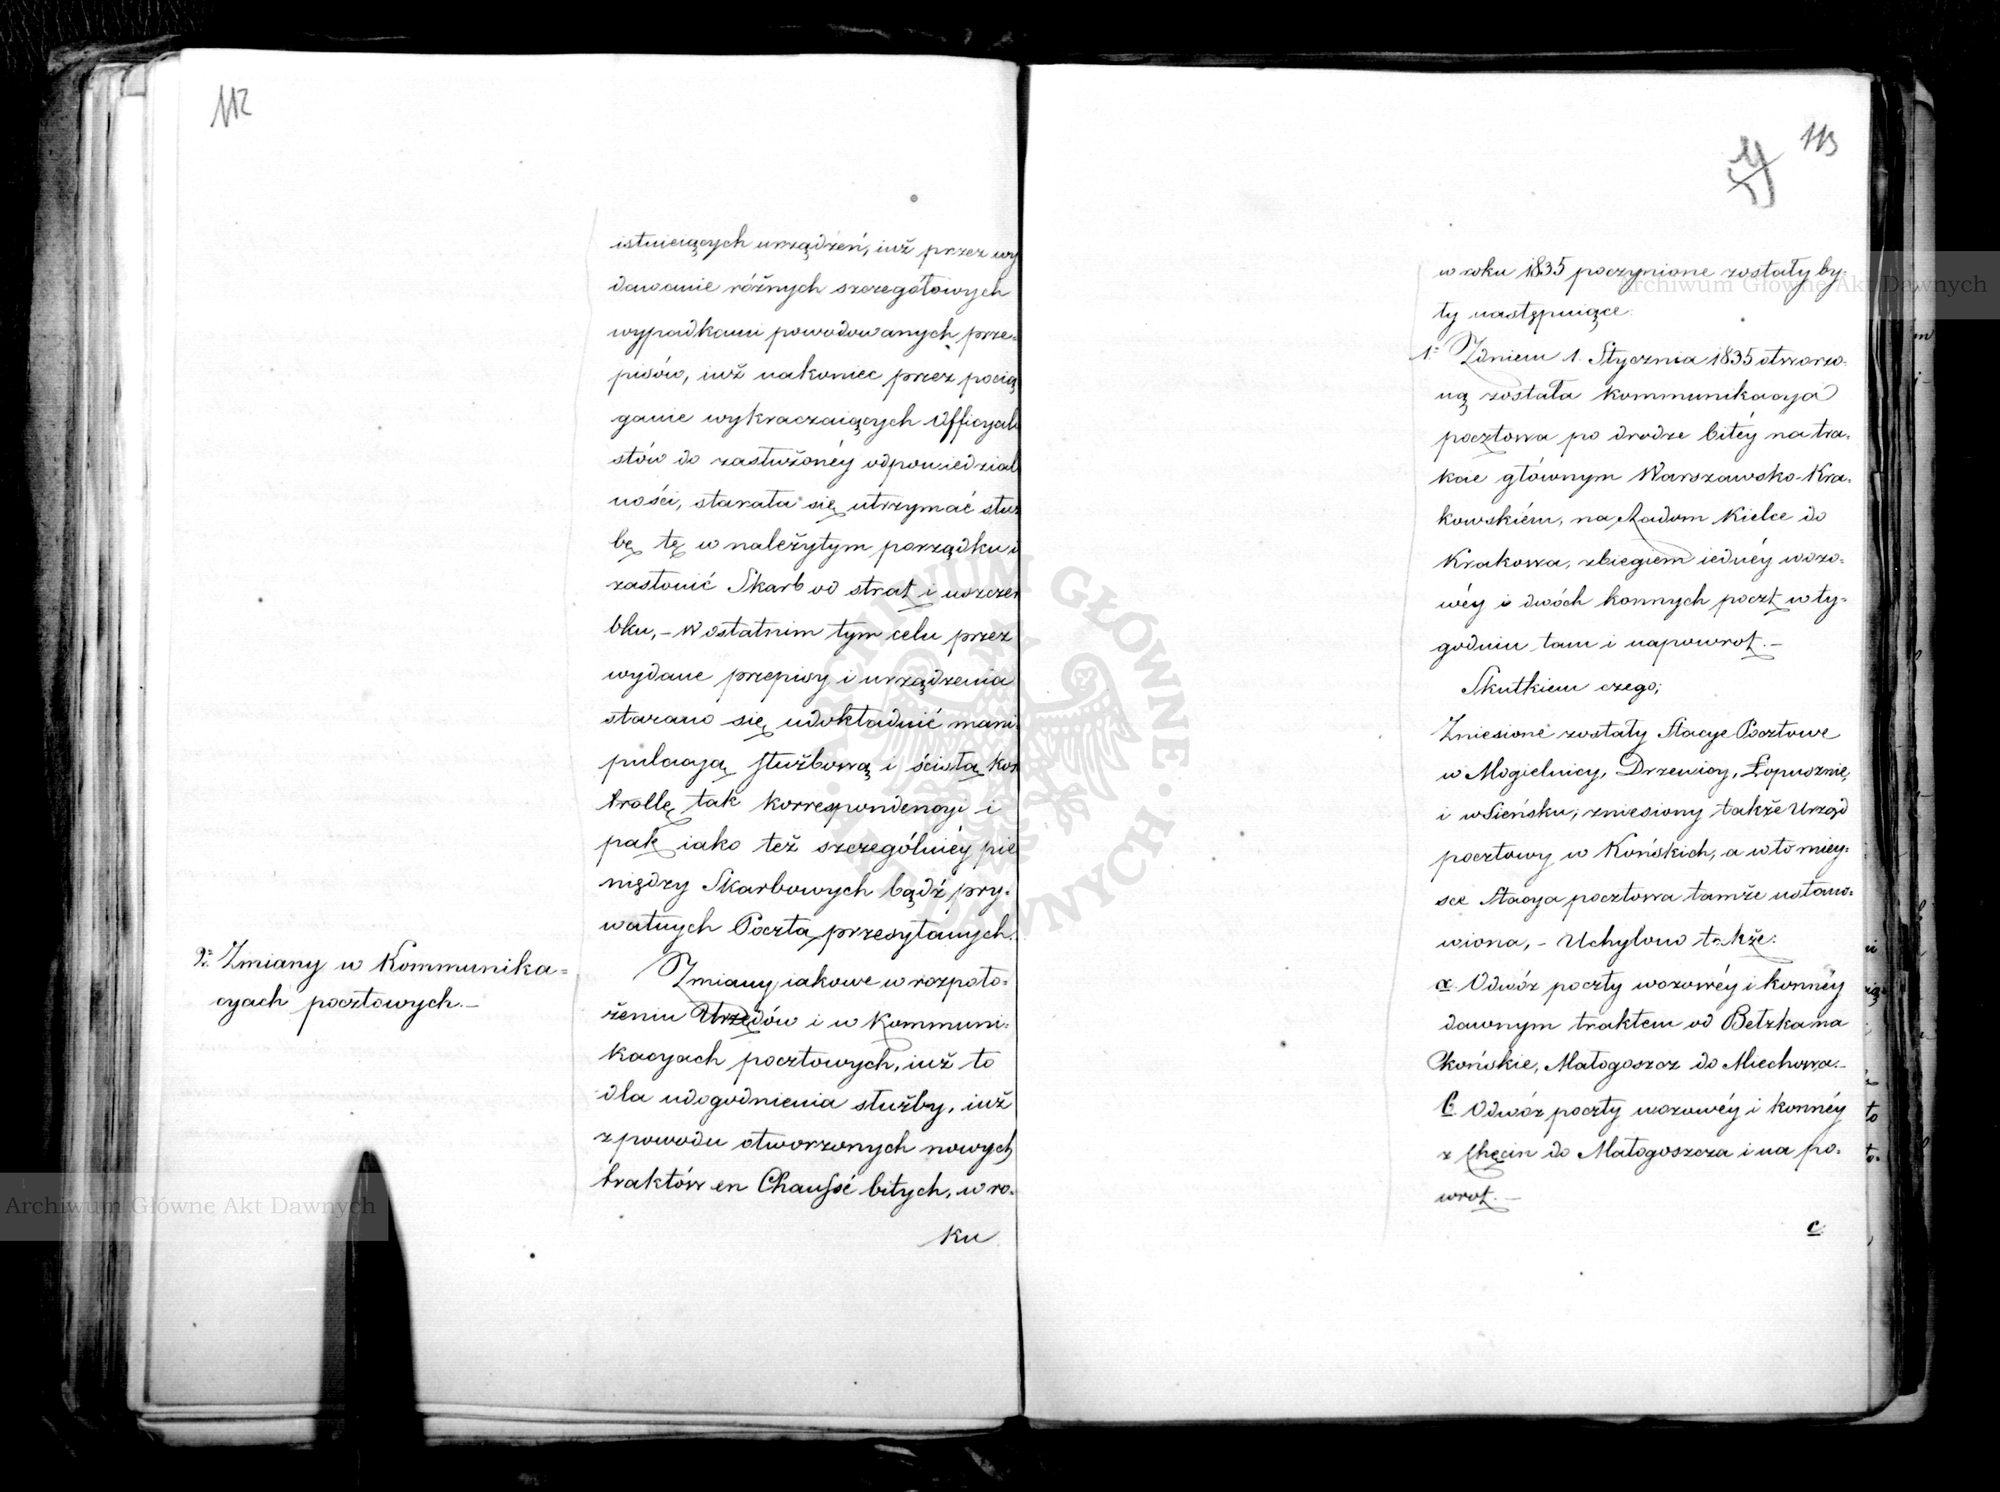 112
istnieiących urządzeń, iuż przez wy
dawanie różnych szczegółowych
wypadkami powodowanych prze-
pisów, iuż nakoniec przez pocią
ganie wykraczaiących Officyali
stów do zasłużonéy odpowiedzial
ności, starała się utrzymać służ
bę tę w należytym porządku i
zasłonić Skarb od strat i uszczer
bku, – W ostatnim tym celu przez
wydane przepisy i urządzenia
starano się udokładnić mani-
pulacyą służbową i ścisłą kon
trollę tak korrespondencyi i
pak iako też szczególniéy pie
niędzy Skarbowych bądź pry-
watnych Pocztą przesyłanych.
2º Zmiany w Kommunika=
cyach pocztowych.–
Zmiany iakowe w rozpoło-
żeniu Urzędów i w Kommuni-
kacyach pocztowych, iuż to
dla udogodnienia służby, iuż
z powodu otworzonych nowych
traktów en Chaussé bitych, w ro-
ku
113
w roku 1835 poczynione zostały by-
ły następuiące:
1º Z dniem 1. Stycznia 1835 otworzo-
ną została kommunikacya
pocztowa po drodze bitéy na tra-
kcie głównym Warszawsko-Kra-
kowskiém, na Radom Kielce do
Krakowa, z biegiem iednéy wozo-
wéy i dwóch konnych poczt w ty-
godniu tam i napowrot. –
Skutkiem czego;
Zniesione zostały Stacye Pocztowe
w Mogielnicy, Drzewicy, Łopusznie,
i w Sieńsku; zniesiony także Urząd
pocztowy w Końskich, a w to miey-
sce Stacya pocztowa tamże ustano-
wiona, – Uchylono także:
a. Odwóz poczty wozowéy i konnéy
dawnym traktem od Bełzka na
Końskie, Małogoszcz do Miechowa.–
b. Odwóz poczty wozowéy i konnéy
z Chęcin do Małogoszcza i na po-
wrot. –
c
Archiwum Główne Akt Dawnych
Archiwum Główne Akt Dawnych
ARCHIWUM GŁÓWNE AKT DAWNYCH